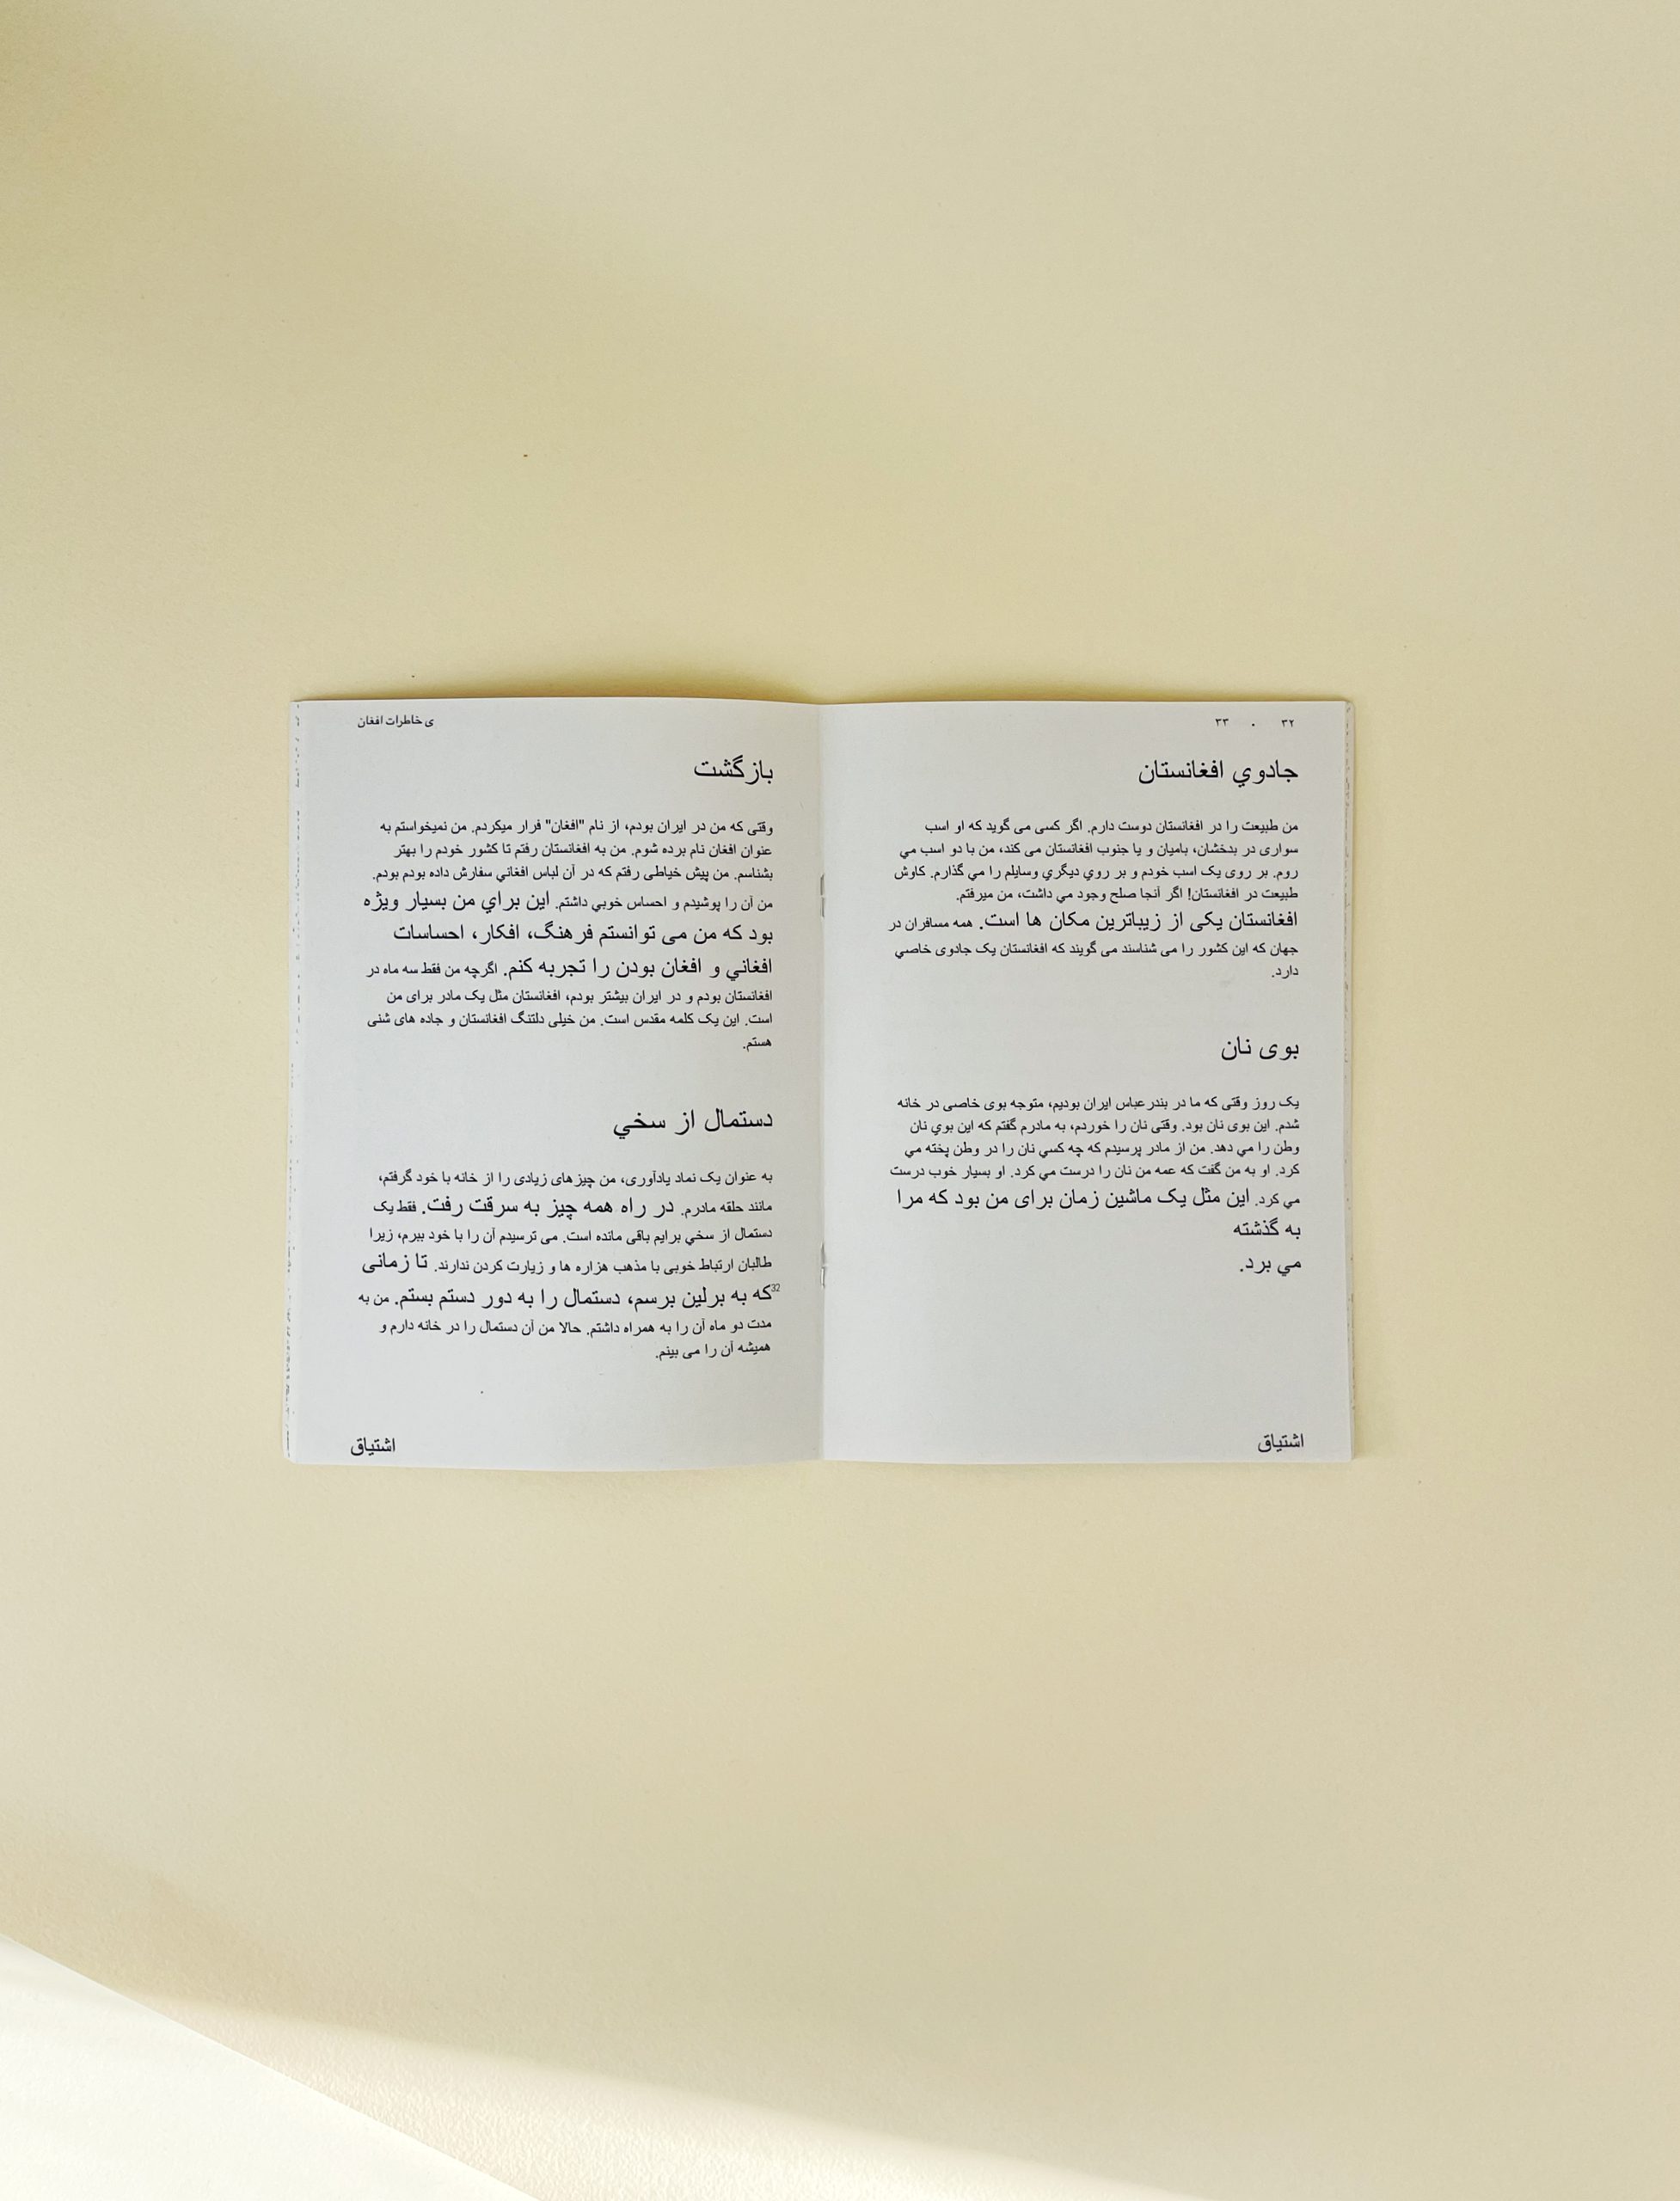 ۳۲ . ۳۳
جادوي افغانستان
من طبیعت را در افغانستان دوست دارم. اگر کسی می گوید که او اسب
سواری در بدخشان، بامیان و یا جنوب افغانستان می کند، من با دو اسب مي
روم. بر روی یک اسب خودم و بر روي دیگري وسایلم را مي گذارم. کاوش
طبیعت در افغانستان! اگر آنجا صلح وجود مي داشت، من میرفتم.
افغانستان یکی از زیباترین مکان ها است. همه مسافران در
جهان که این کشور را می شناسند می گویند که افغانستان یک جادوی خاصي
دارد.
بوی نان
یک روز وقتی که ما در بندرعباس ایران بودیم، متوجه بوی خاصی در خانه
شدم. این بوی نان بود. وقتی نان را خوردم، به مادرم گفتم که این بوي نان
وطن را مي دهد. من از مادر پرسیدم که چه کسي نان را در وطن پخته مي
کرد. او به من گفت که عمه من نان را درست مي کرد. او بسیار خوب درست
مي کرد. این مثل یک ماشین زمان برای من بود که مرا
به گذشته
مي برد.
اشتیاق
ی خاطرات افغان
بازگشت
وقتی که من در ایران بودم، از نام "افغان" فرار میکردم. من نمیخواستم به
عنوان افغان نام برده شوم. من به افغانستان رفتم تا کشور خودم را بهتر
بشناسم. من پیش خیاطی رفتم که در آن لباس افغاني سفارش داده بودم بودم.
من آن را پوشیدم و احساس خوبي داشتم. این براي من بسیار ویژه
بود که من می توانستم فرهنگ، افکار، احساسات
افغاني و افغان بودن را تجربه کنم. اگرچه من فقط سه ماه در
افغانستان بودم و در ایران بیشتر بودم، افغانستان مثل یک مادر برای من
است. این یک کلمه مقدس است. من خیلی دلتنگ افغانستان و جاده های شنی
هستم.
دستمال از سخي
به عنوان یک نماد یادآوری، من چیزهای زیادی را از خانه با خود گرفتم،
مانند حلقه مادرم. در راه همه چیز به سرقت رفت. فقط یک
دستمال از سخي برایم باقی مانده است. می ترسیدم آن را با خود ببرم، زیرا
طالبان ارتباط خوبی با مذهب هزاره ها و زیارت کردن ندارند. تا زمانی
32که به برلین برسم، دستمال را به دور دستم بستم. من به
مدت دو ماه آن را به همراه داشتم. حالا من آن دستمال را در خانه دارم و
همیشه آن را می بینم.
اشتیاق